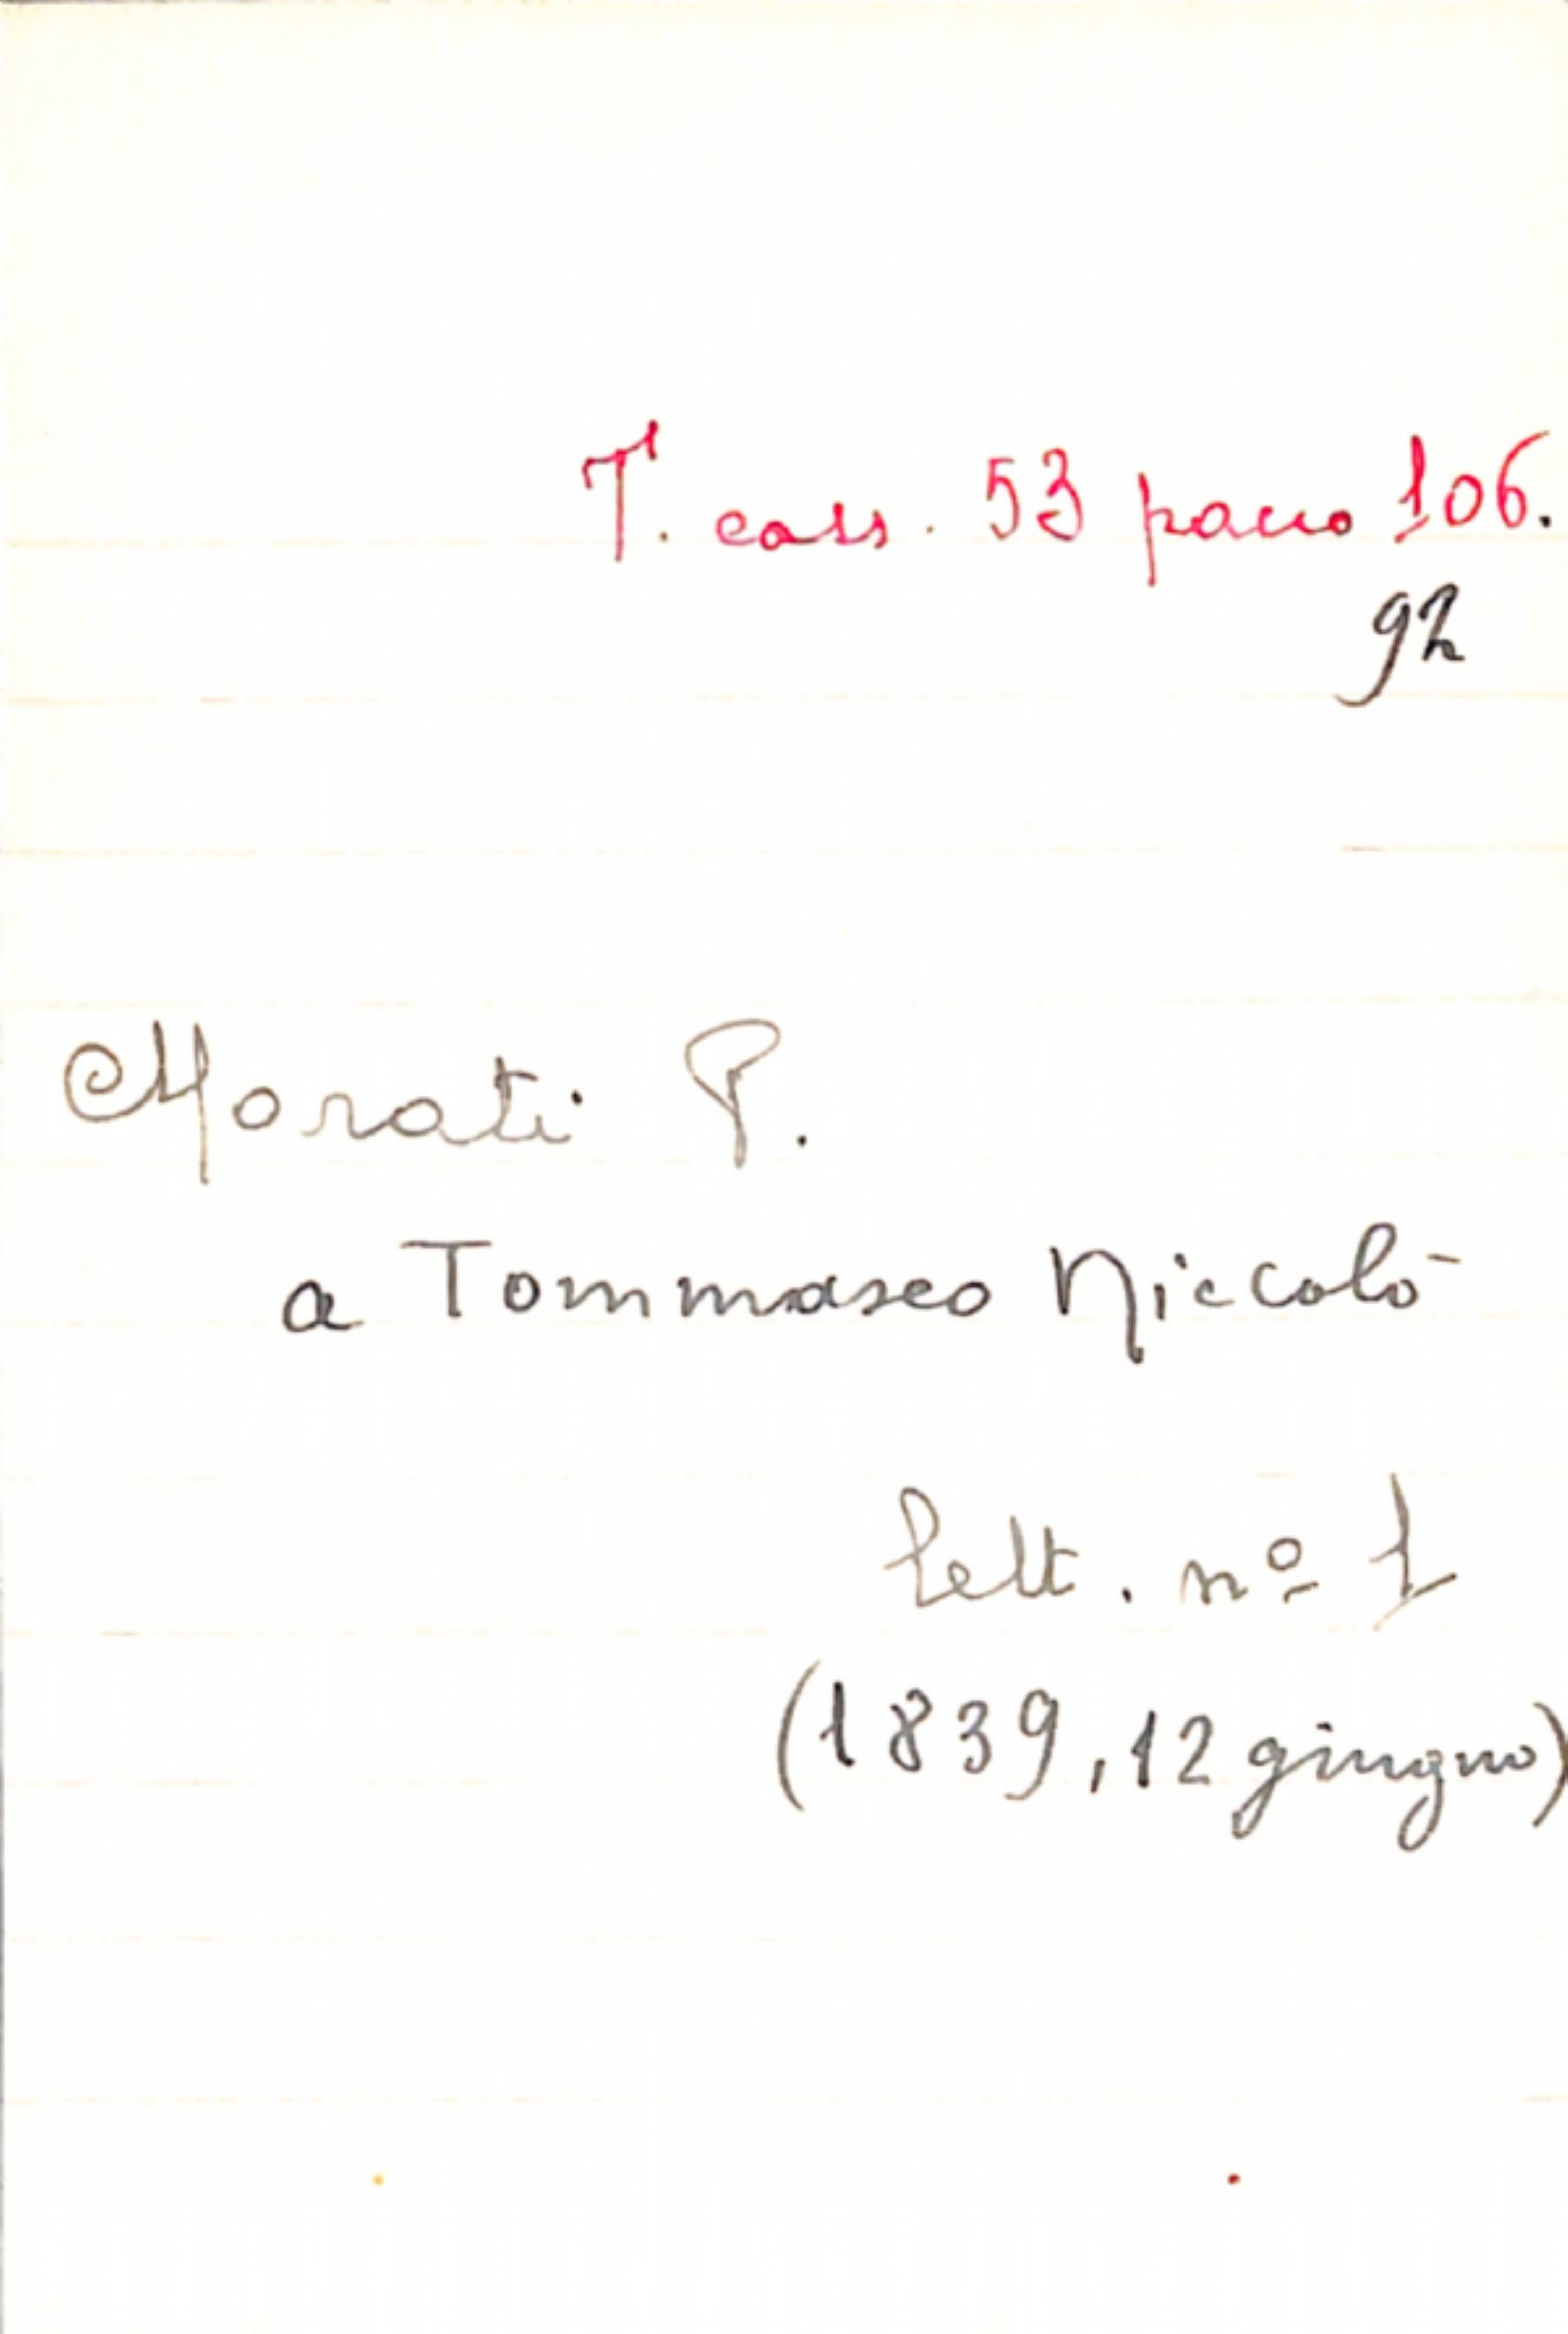 T. cass. 53 pacco 106.
92
Morati P.
a Tommaseo Niccolò
lett. nº 1
(1839, 12 giugno)